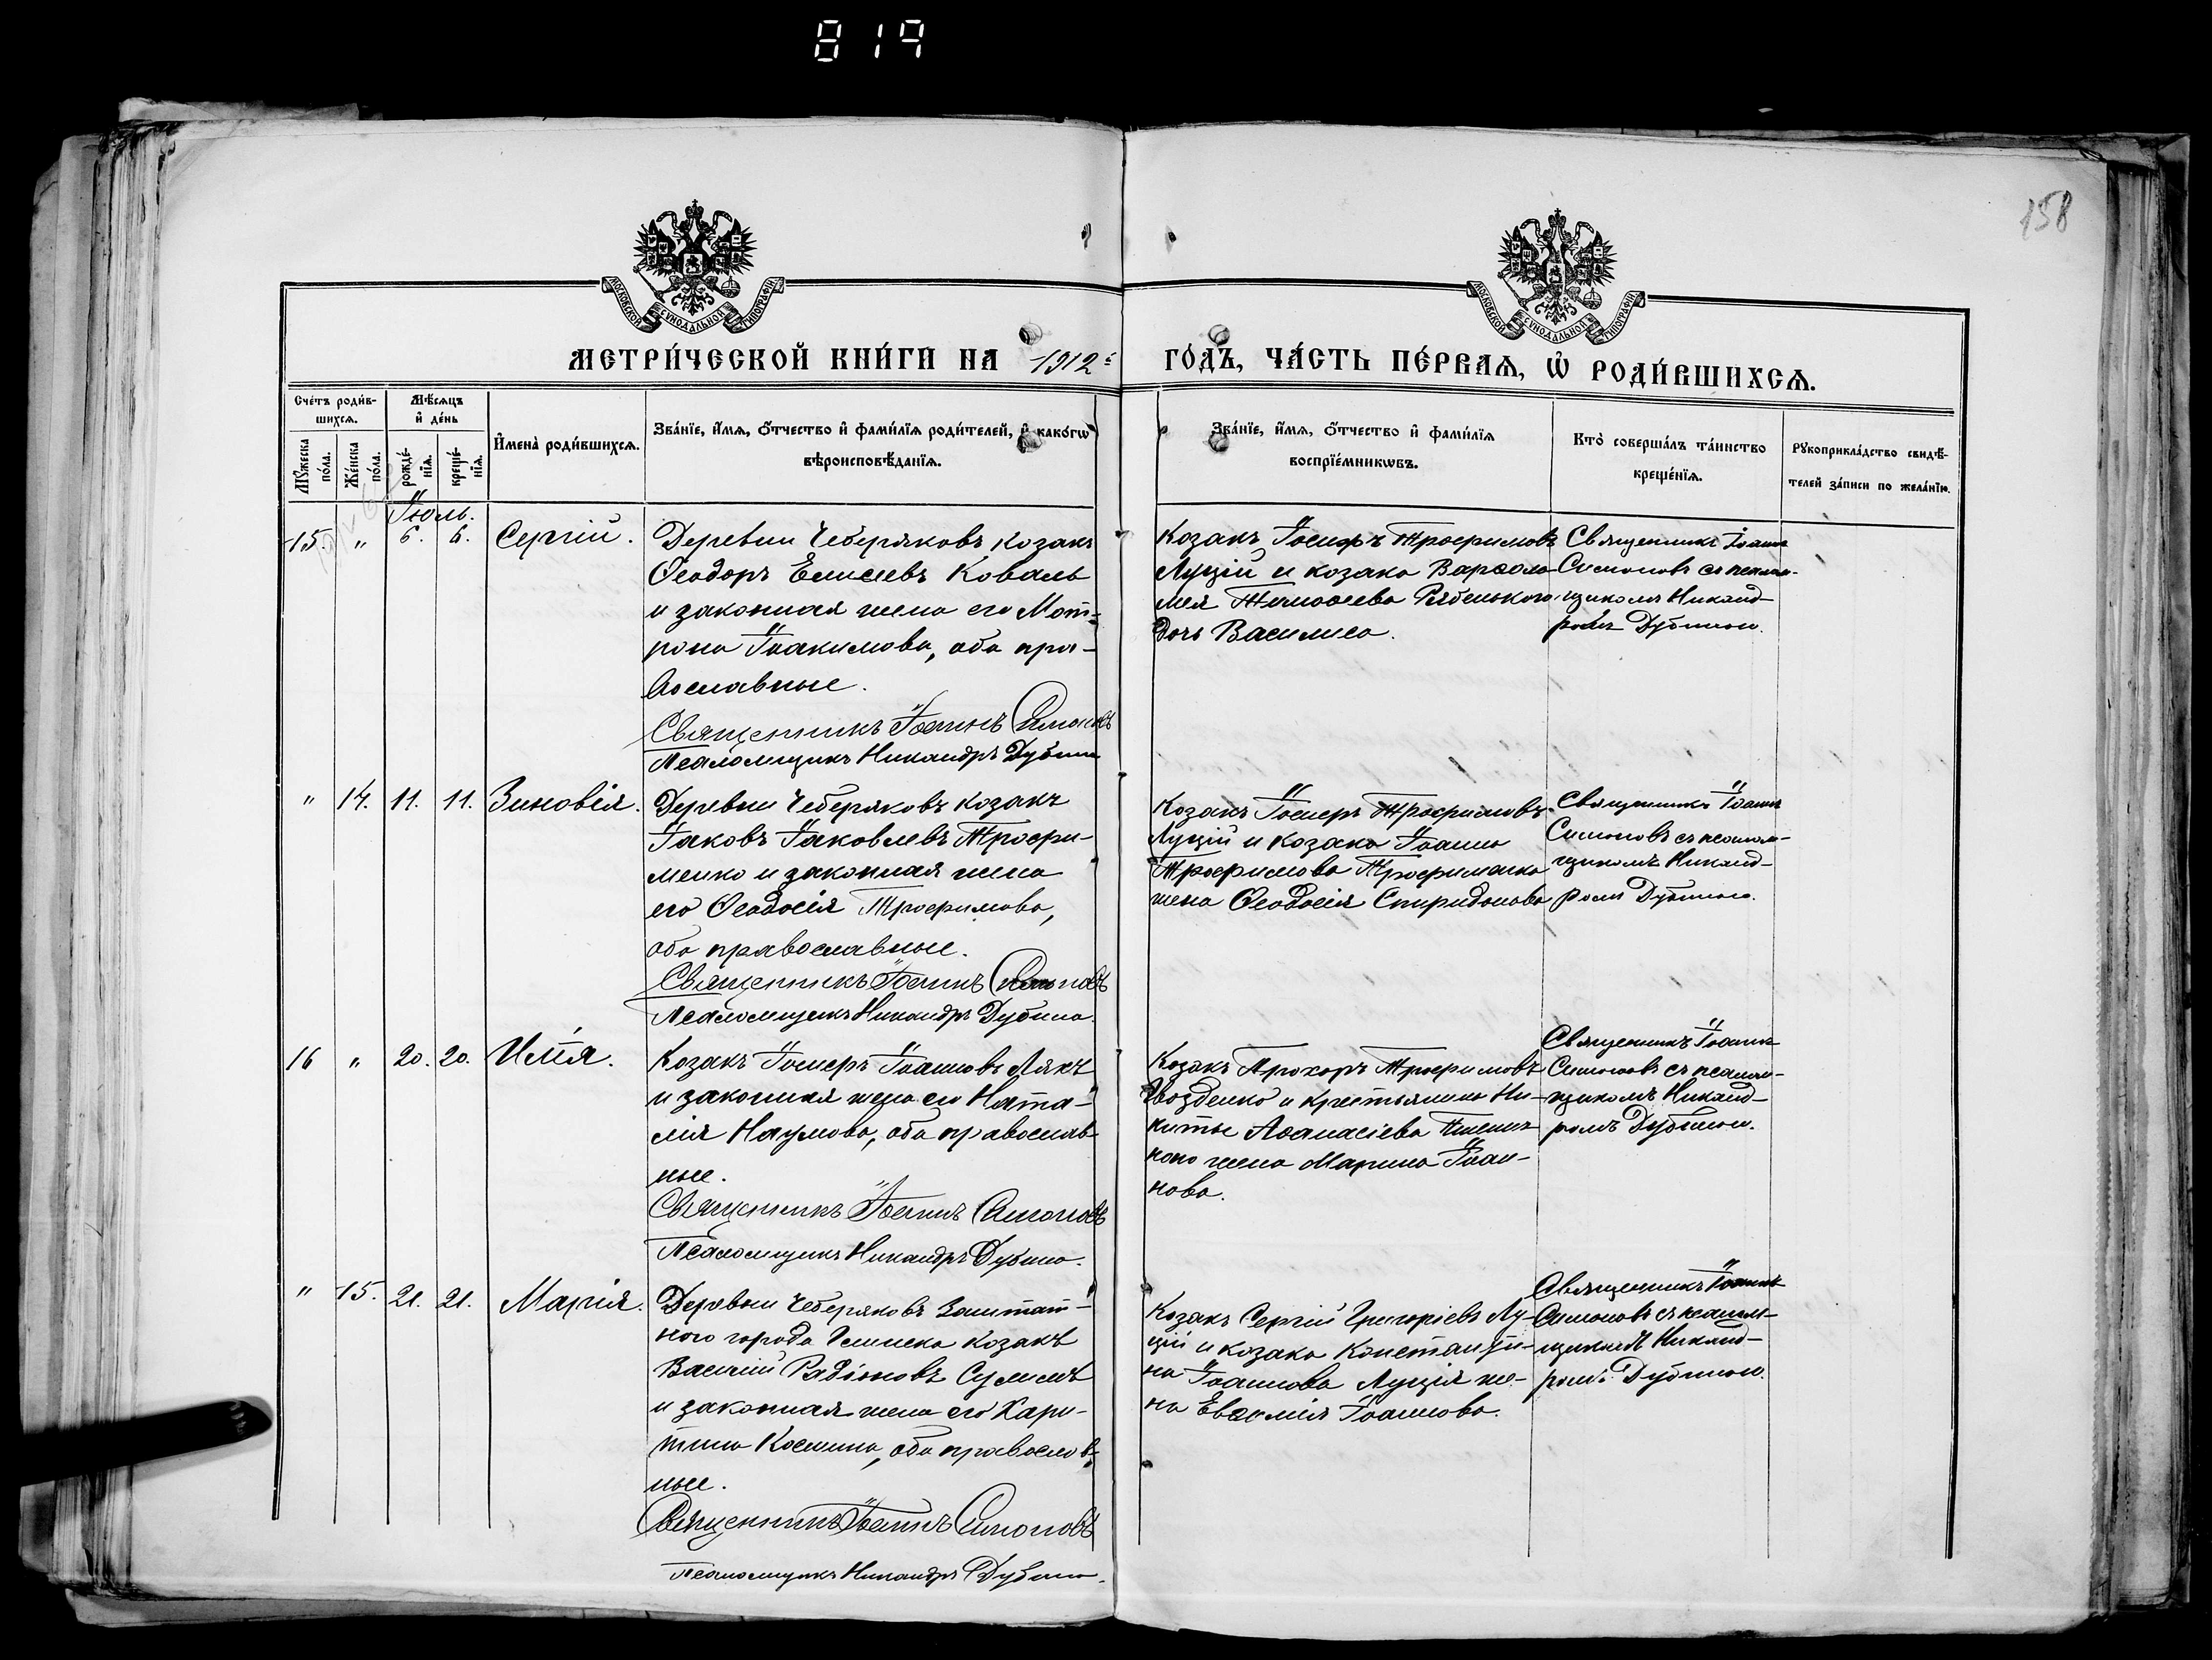 819
158
МОСКОВСКОЙ СѴНОДАЛЬНОЙ ТИПОГРАФІИ
МОСКОВСКОЙ СѴНОДАЛЬНОЙ ТИПОГРАФІИ
МЕТРИ́ЧЕСКОЙ КНИ́ГИ НА 1912
ГО́ДЪ, ЧА́СТЬ ПЕ́РВАѦ, Ѡ҆ РОДИ́ВШИХСѦ.
Сче́тъ роди́в-
шихсѧ.
Мѣ́сѧцъ
и҆ де́нь
Мꙋ́жеска
по́ла.
Же́нска
по́ла.
рожде́-
нїѧ.
креще́-
нїѧ.
И҆мена̀ роди́вшихсѧ.
Зва́нїе, и҆́мѧ, ѻ҆́тчество и҆ фами́лїѧ роди́телей, и҆ како́гѡ
вѣроисповѣ́данїѧ.
Зва́нїе, и҆́мѧ, ѻ҆́тчество и҆ фами́лїѧ
воспрїе́мникѡвъ.
Кто̀ соверша́лъ та́инство
креще́нїѧ.
Рꙋкоприкла́дство свидѣ́-
телей за́писи по жела́нїю.
Іюль.
15. " 6. 6. Сергій.
Деревни Чеберяковъ козакъ
Ѳеодоръ Елисеевъ Коваль
и законная жена его Мот-
рона Іоакимова, оба пра-
вославные.
Священникъ Іоаннъ Симоновъ
Псаломщикъ Никандръ Дубина
Козакъ Іосифъ Трофимовъ
Луцій и козака Варѳоло-
мея Тимоѳеева Рябенького
дочь Василиса.
Священникъ Іоаннъ
Симоновъ съ псалом-
щикомъ Никанд-
ромъ Дубиною.
" 14. 11. 11. Зиновія.
Деревни Чеберяковъ козакъ
Іаковъ Іаковлевъ Трофи-
менко и законная жена
его Ѳеодосія Трофимова,
оба православные.
Священникъ Іоаннъ Симоновъ
Псаломщикъ Никандръ Дубина.
Козакъ Іосифъ Трофимовъ
Луцій и козака Іоанна
Трофимова Трофименка
жена Ѳеодосія Спиридонова
Священникъ Іоаннъ
Симоновъ съ псалом-
щикомъ Никанд-
ромъ Дубиною.
16 " 20. 20. Илія.
Козакъ Іосифъ Іоанновъ Ляхъ
и законная жена его Ната-
лія Наумова, оба православ-
ные.
Священникъ Іоаннъ Симоновъ
Псаломщикъ Никандръ Дубина.
Козакъ Прохоръ Трофимовъ
Гвозденко и крестьянина Ни-
киты Аѳанасіева
жена Марина Іоан-
нова.
Священникъ Іоаннъ
Симоновъ съ псалом-
щикомъ Никанд-
ромъ Дубиною.
" 15. 21. 21. Марія.
Деревни Чеберяковъ Заштат-
ного города Глинска козакъ
Василій Радіоновъ Сулимъ
и законная жена его Хари-
тина Космина, оба православ-
ные.
Священникъ Іоаннъ Симоновъ
Псаломщикъ Никандръ Дубина.
Козакъ Сергій Григоріевъ Лу-
цій и козака Константи-
на Іоаннова Луція же-
на Евѳимія Іоаннова.
Священникъ Іоаннъ
Симоновъ съ псалом-
щикомъ Никанд-
ромъ Дубиною.